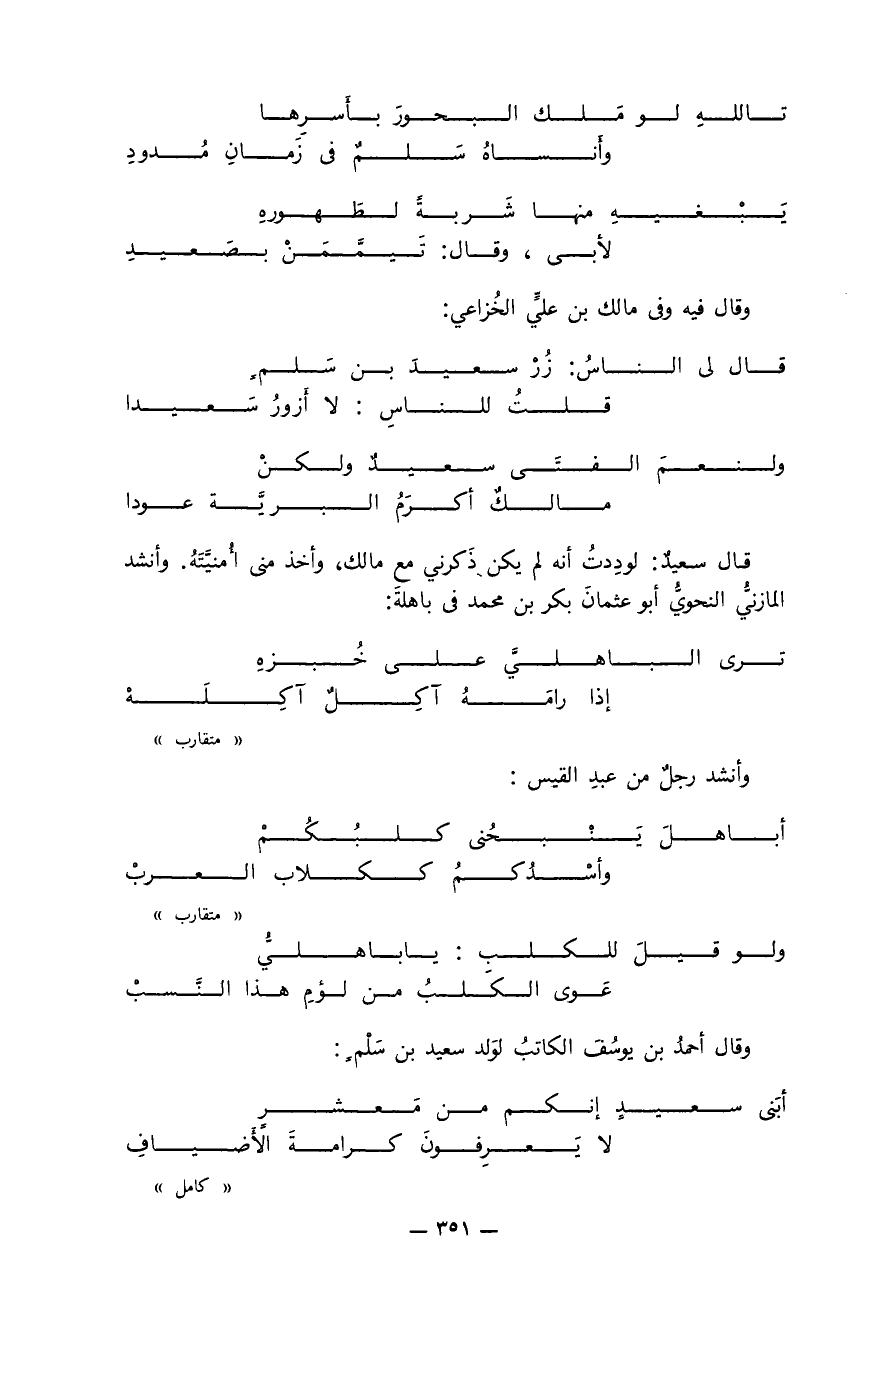 تاللهِ لو مَلك البحورَ بأَسرِها
وأَنساهُ سَلمٌ فى زَمانِ مُدودِ
يَبْغيهِ منها شَربةً لطَهورهِ
لأبى ، وقال: تَيمَّمَنْ بصَعيدِ
وقال فيه وفى مالك بن عليٍّ الخُزاعي:
قال لى الناسُ: زُرْ سعيدَ بن سَلمٍ
قلتُ للناسِ : لا أَزورُ سَعيدا
ولنعمَ الفتَى سعيدٌ ولكنْ
مالكٌ أكرَمُ البريَّة عودا
قال سعيدٌ: لودِدتُ أنه لم يكن ذَكرني مع مالك، وأخذ منى أُمنيَّتَهُ. وأنشد
المازنيُّ النحويُّ أبو عثمانَ بكر بن محمد فى باهلةَ:
ترى الباهليَّ على خُبزهِ
إذا رامَهُ آكِلٌ آكِلَهْ
« متقارب »
وأنشد رجلٌ من عبدِ القيس :
أباهلَ يَنْبحُنى كلبُكُمْ
وأسْدُكمُ ككلاب العربْ
« متقارب »
ولو قيلَ للكلبِ : ياباهليُّ
عَوى الكلبُ من لؤمِ هذا النَّسبْ
وقال أحمدُ بن يوسُفَ الكاتبُ لوَلد سعيد بن سَلْمٍ:
أبَنى سعيدٍ إنكم من مَعشرٍ
لا يَعرِفونَ كرامةَ الأَضيافِ
« كامل »
— ٣٥١ —